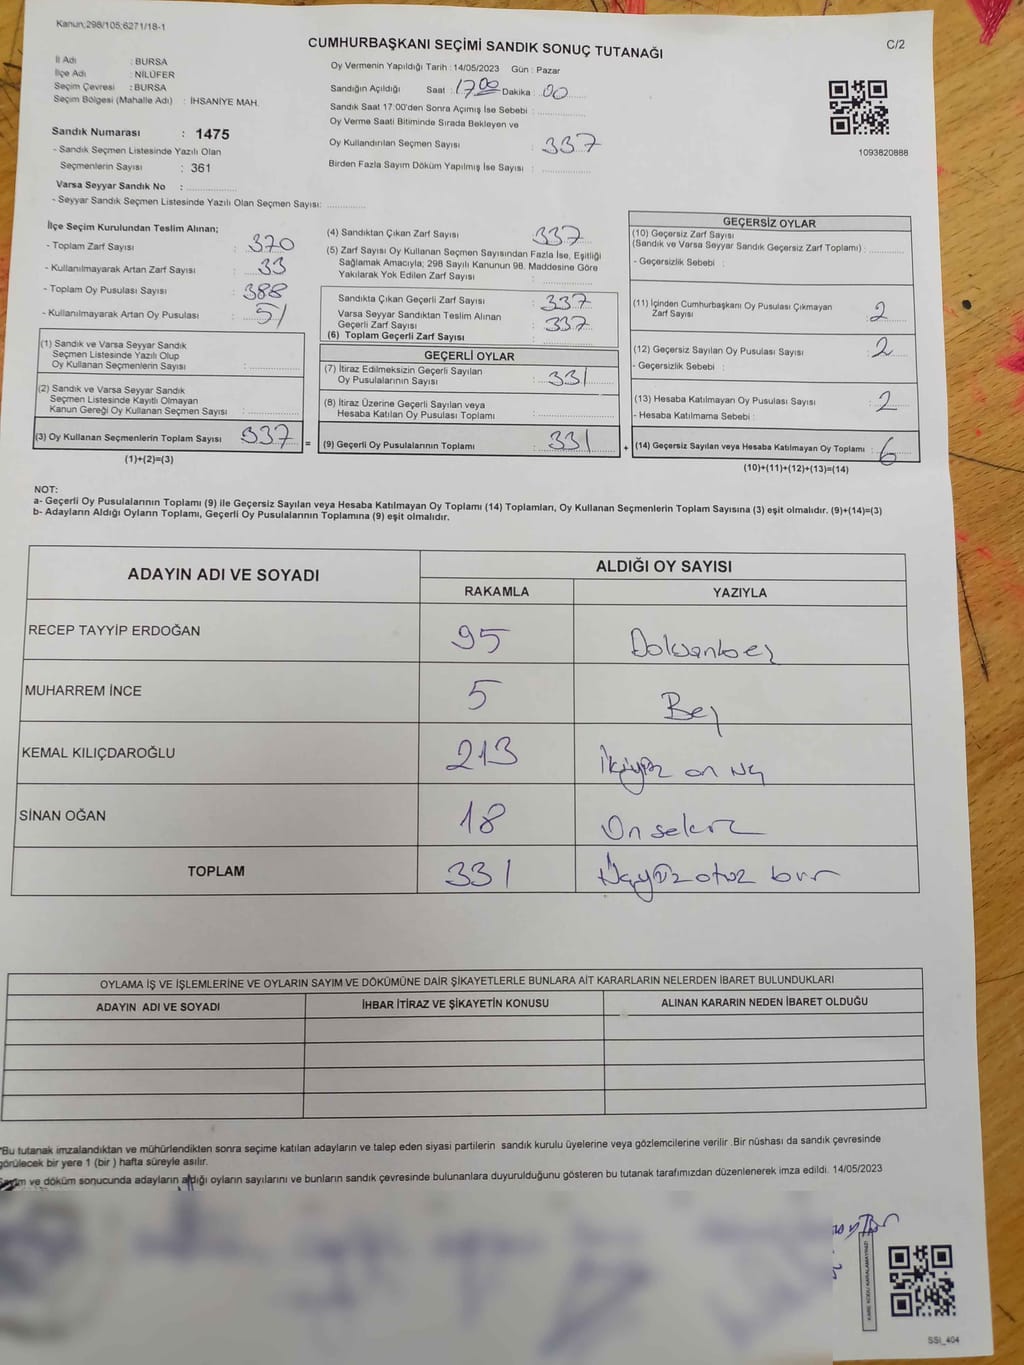 Kanun,298/105,6271/18-1
C/2
CUMHURBAŞKANI SEÇİMİ SANDIK SONUÇ TUTANAĞI
İl Adı : BURSA
İlçe Adı : NİLÜFER
Seçim Çevresi : BURSA
Seçim Bölgesi (Mahalle Adı) : İHSANİYE MAH.
Sandık Numarası : 1475
- Sandık Seçmen Listesinde Yazılı Olan
Seçmenlerin Sayısı : 361
Varsa Seyyar Sandık No :
- Seyyar Sandık Seçmen Listesinde Yazılı Olan Seçmen Sayısı:
Oy Vermenin Yapıldığı Tarih : 14/05/2023 Gün : Pazar
Sandığın Açıldığı Saat : 17 00 Dakika : 00
Sandık Saat 17:00'den Sonra Açımış İse Sebebi :
Oy Verme Saati Bitiminde Sırada Bekleyen ve
Oy Kullandırılan Seçmen Sayısı : 337
Birden Fazla Sayım Döküm Yapılmış İse Sayısı :
1093820888
İlçe Seçim Kurulundan Teslim Alınan;
- Toplam Zarf Sayısı : 370
- Kullanılmayarak Artan Zarf Sayısı : 33
- Toplam Oy Pusulası Sayısı : 388
- Kullanılmayarak Artan Oy Pusulası : 51
(1) Sandık ve Varsa Seyyar Sandık
Seçmen Listesinde Yazılı Olup
Oy Kullanan Seçmenlerin Sayısı :
(2) Sandık ve Varsa Seyyar Sandık
Seçmen Listesinde Kayıtlı Olmayan
Kanun Gereği Oy Kullanan Seçmen Sayısı :
(3) Oy Kullanan Seçmenlerin Toplam Sayısı 337 =
(1)+(2)=(3)
(4) Sandıktan Çıkan Zarf Sayısı : 337
(5) Zarf Sayısı Oy Kullanan Seçmen Sayısından Fazla İse, Eşitliği
Sağlamak Amacıyla; 298 Sayılı Kanunun 98. Maddesine Göre
Yakılarak Yok Edilen Zarf Sayısı :
Sandıkta Çıkan Geçerli Zarf Sayısı : 337
Varsa Seyyar Sandıktan Teslim Alınan
Geçerli Zarf Sayısı : 337
(6) Toplam Geçerli Zarf Sayısı :
GEÇERLİ OYLAR
(7) İtiraz Edilmeksizin Geçerli Sayılan
Oy Pusulalarının Sayısı : 331
(8) İtiraz Üzerine Geçerli Sayılan veya
Hesaba Katılan Oy Pusulası Toplamı :
(9) Geçerli Oy Pusulalarının Toplamı : 331 +
GEÇERSİZ OYLAR
(10) Geçersiz Zarf Sayısı
(Sandık ve Varsa Seyyar Sandık Geçersiz Zarf Toplamı) :
- Geçersizlik Sebebi :
(11) İçinden Cumhurbaşkanı Oy Pusulası Çıkmayan
Zarf Sayısı : 2
(12) Geçersiz Sayılan Oy Pusulası Sayısı : 2
- Geçersizlik Sebebi :
(13) Hesaba Katılmayan Oy Pusulası Sayısı : 2
- Hesaba Katılmama Sebebi :
(14) Geçersiz Sayılan veya Hesaba Katılmayan Oy Toplamı : 6
(10)+(11)+(12)+(13)=(14)
NOT:
a- Geçerli Oy Pusulalarının Toplamı (9) ile Geçersiz Sayılan veya Hesaba Katılmayan Oy Toplamı (14) Toplamları, Oy Kullanan Seçmenlerin Toplam Sayısına (3) eşit olmalıdır. (9)+(14)=(3)
b- Adayların Aldığı Oyların Toplamı, Geçerli Oy Pusulalarının Toplamına (9) eşit olmalıdır.
ADAYIN ADI VE SOYADI
ALDIĞI OY SAYISI
RAKAMLA YAZIYLA
RECEP TAYYİP ERDOĞAN 95 Doksanbeş
MUHARREM İNCE 5 Beş
KEMAL KILIÇDAROĞLU 213 İkiyüz on üç
SİNAN OĞAN 18 On sekiz
TOPLAM 331 Üçyüz otuz bir
OYLAMA İŞ VE İŞLEMLERİNE VE OYLARIN SAYIM VE DÖKÜMÜNE DAİR ŞİKAYETLERLE BUNLARA AİT KARARLARIN NELERDEN İBARET BULUNDUKLARI
ADAYIN ADI VE SOYADI İHBAR İTİRAZ VE ŞİKAYETİN KONUSU ALINAN KARARIN NEDEN İBARET OLDUĞU
*Bu tutanak imzalandıktan ve mühürlendikten sonra seçime katılan adayların ve talep eden siyasi partilerin sandık kurulu üyelerine veya gözlemcilerine verilir .Bir nüshası da sandık çevresinde
görülecek bir yere 1 (bir ) hafta süreyle asılır.
Sayım ve döküm sonucunda adayların aldığı oyların sayılarını ve bunların sandık çevresinde bulunanlara duyurulduğunu gösteren bu tutanak tarafımızdan düzenlenerek imza edildi. 14/05/2023
KARE KODU KARALAMAYINIZ!
SSI_404